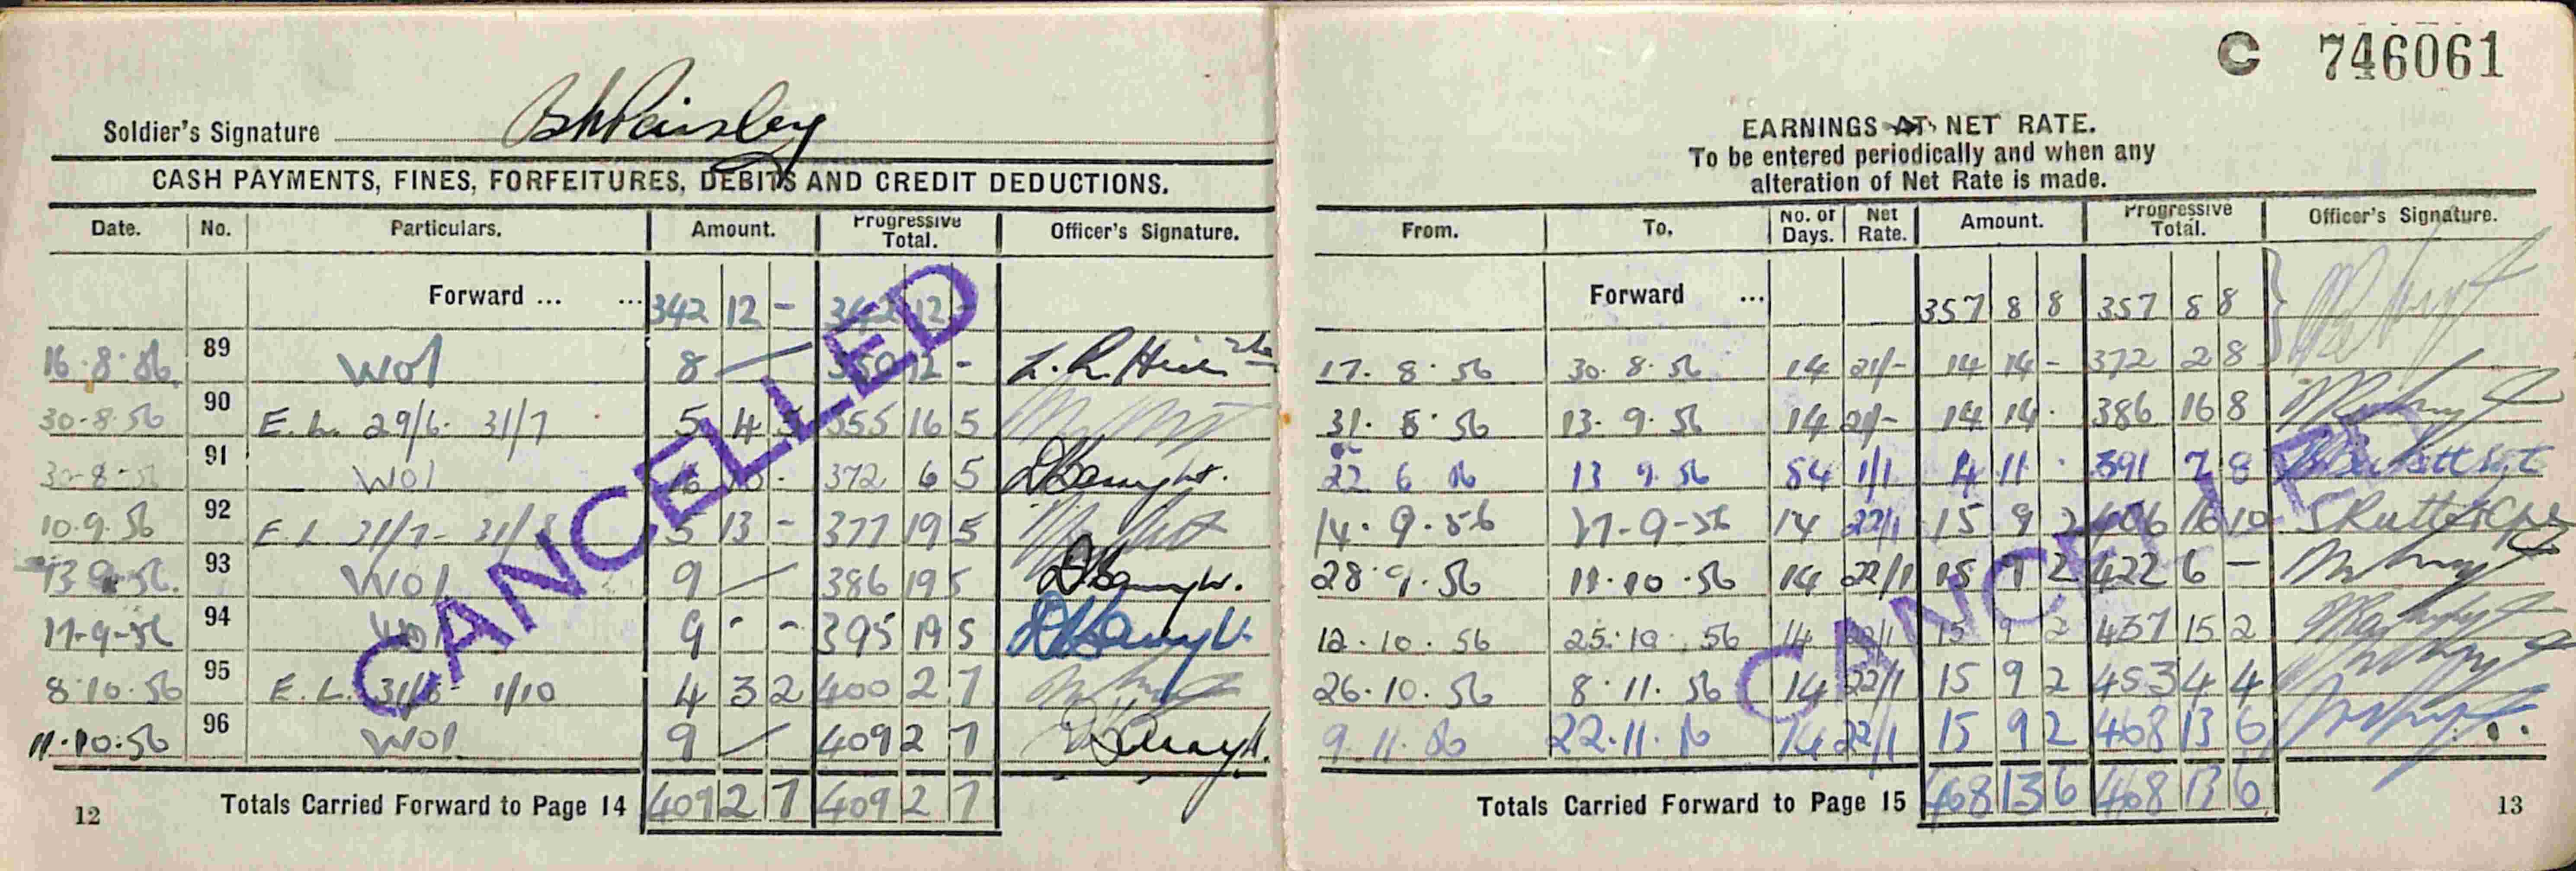 C 746061
Soldier's Signature
CASH PAYMENTS, FINES, FORFEITURES, DEBITS AND CREDIT DEDUCTIONS.
Date. No. Particulars. Amount. Progressive Total. Officer's Signature.
Forward ... ... 342 12 - 342 12 -
16.8.56. 89 Wol 8 350 12 -
30-8-56 90 E.L. 29/6. 31/7 5 4 5 355 16 5
30-8-56 91 Wol 16 10 - 372 6 5
10.9.56 92 E.L. 31/7- 31/8 5 13 - 377 19 5
13.9.56. 93 Wol 9 386 19 5
94 Wol 9 - - 395 19 5
8.10.56 95 E.L. 31/8- 1/10 4 3 2 400 2 7
11.10.56 96 Wol 9 409 2 7
Totals Carried Forward to Page 14 409 2 7 409 2 7
12
CANCELLED
EARNINGS AT NET RATE.
To be entered periodically and when any
alteration of Net Rate is made.
From. To. No. of Days. Net Rate. Amount. Progressive Total. Officer's Signature.
Forward ... 357 8 8 357 8 8
17.8.56 30.8.56 14 21/- 14 14 - 372 2 8
31.8.56 13.9.56 14 21/- 14 14 . 386 16 8
22 6 56 13 9.56 84 1/1 4 11 . 391 7 8
14.9.56 14 22/1 15 9 2 406 16 10
28.9.56 11.10.56 14 22/1 15 9 2 422 6 -
12.10.56 25.10.56 14 22/1 15 9 2 437 15 2
26.10.56 8.11.56 14 22/1 15 9 2 453 4 4
9.11.56 22.11.56 14 22/1 15 9 2 468 13 6
Totals Carried Forward to Page 15 468 13 6 468 13 6
13